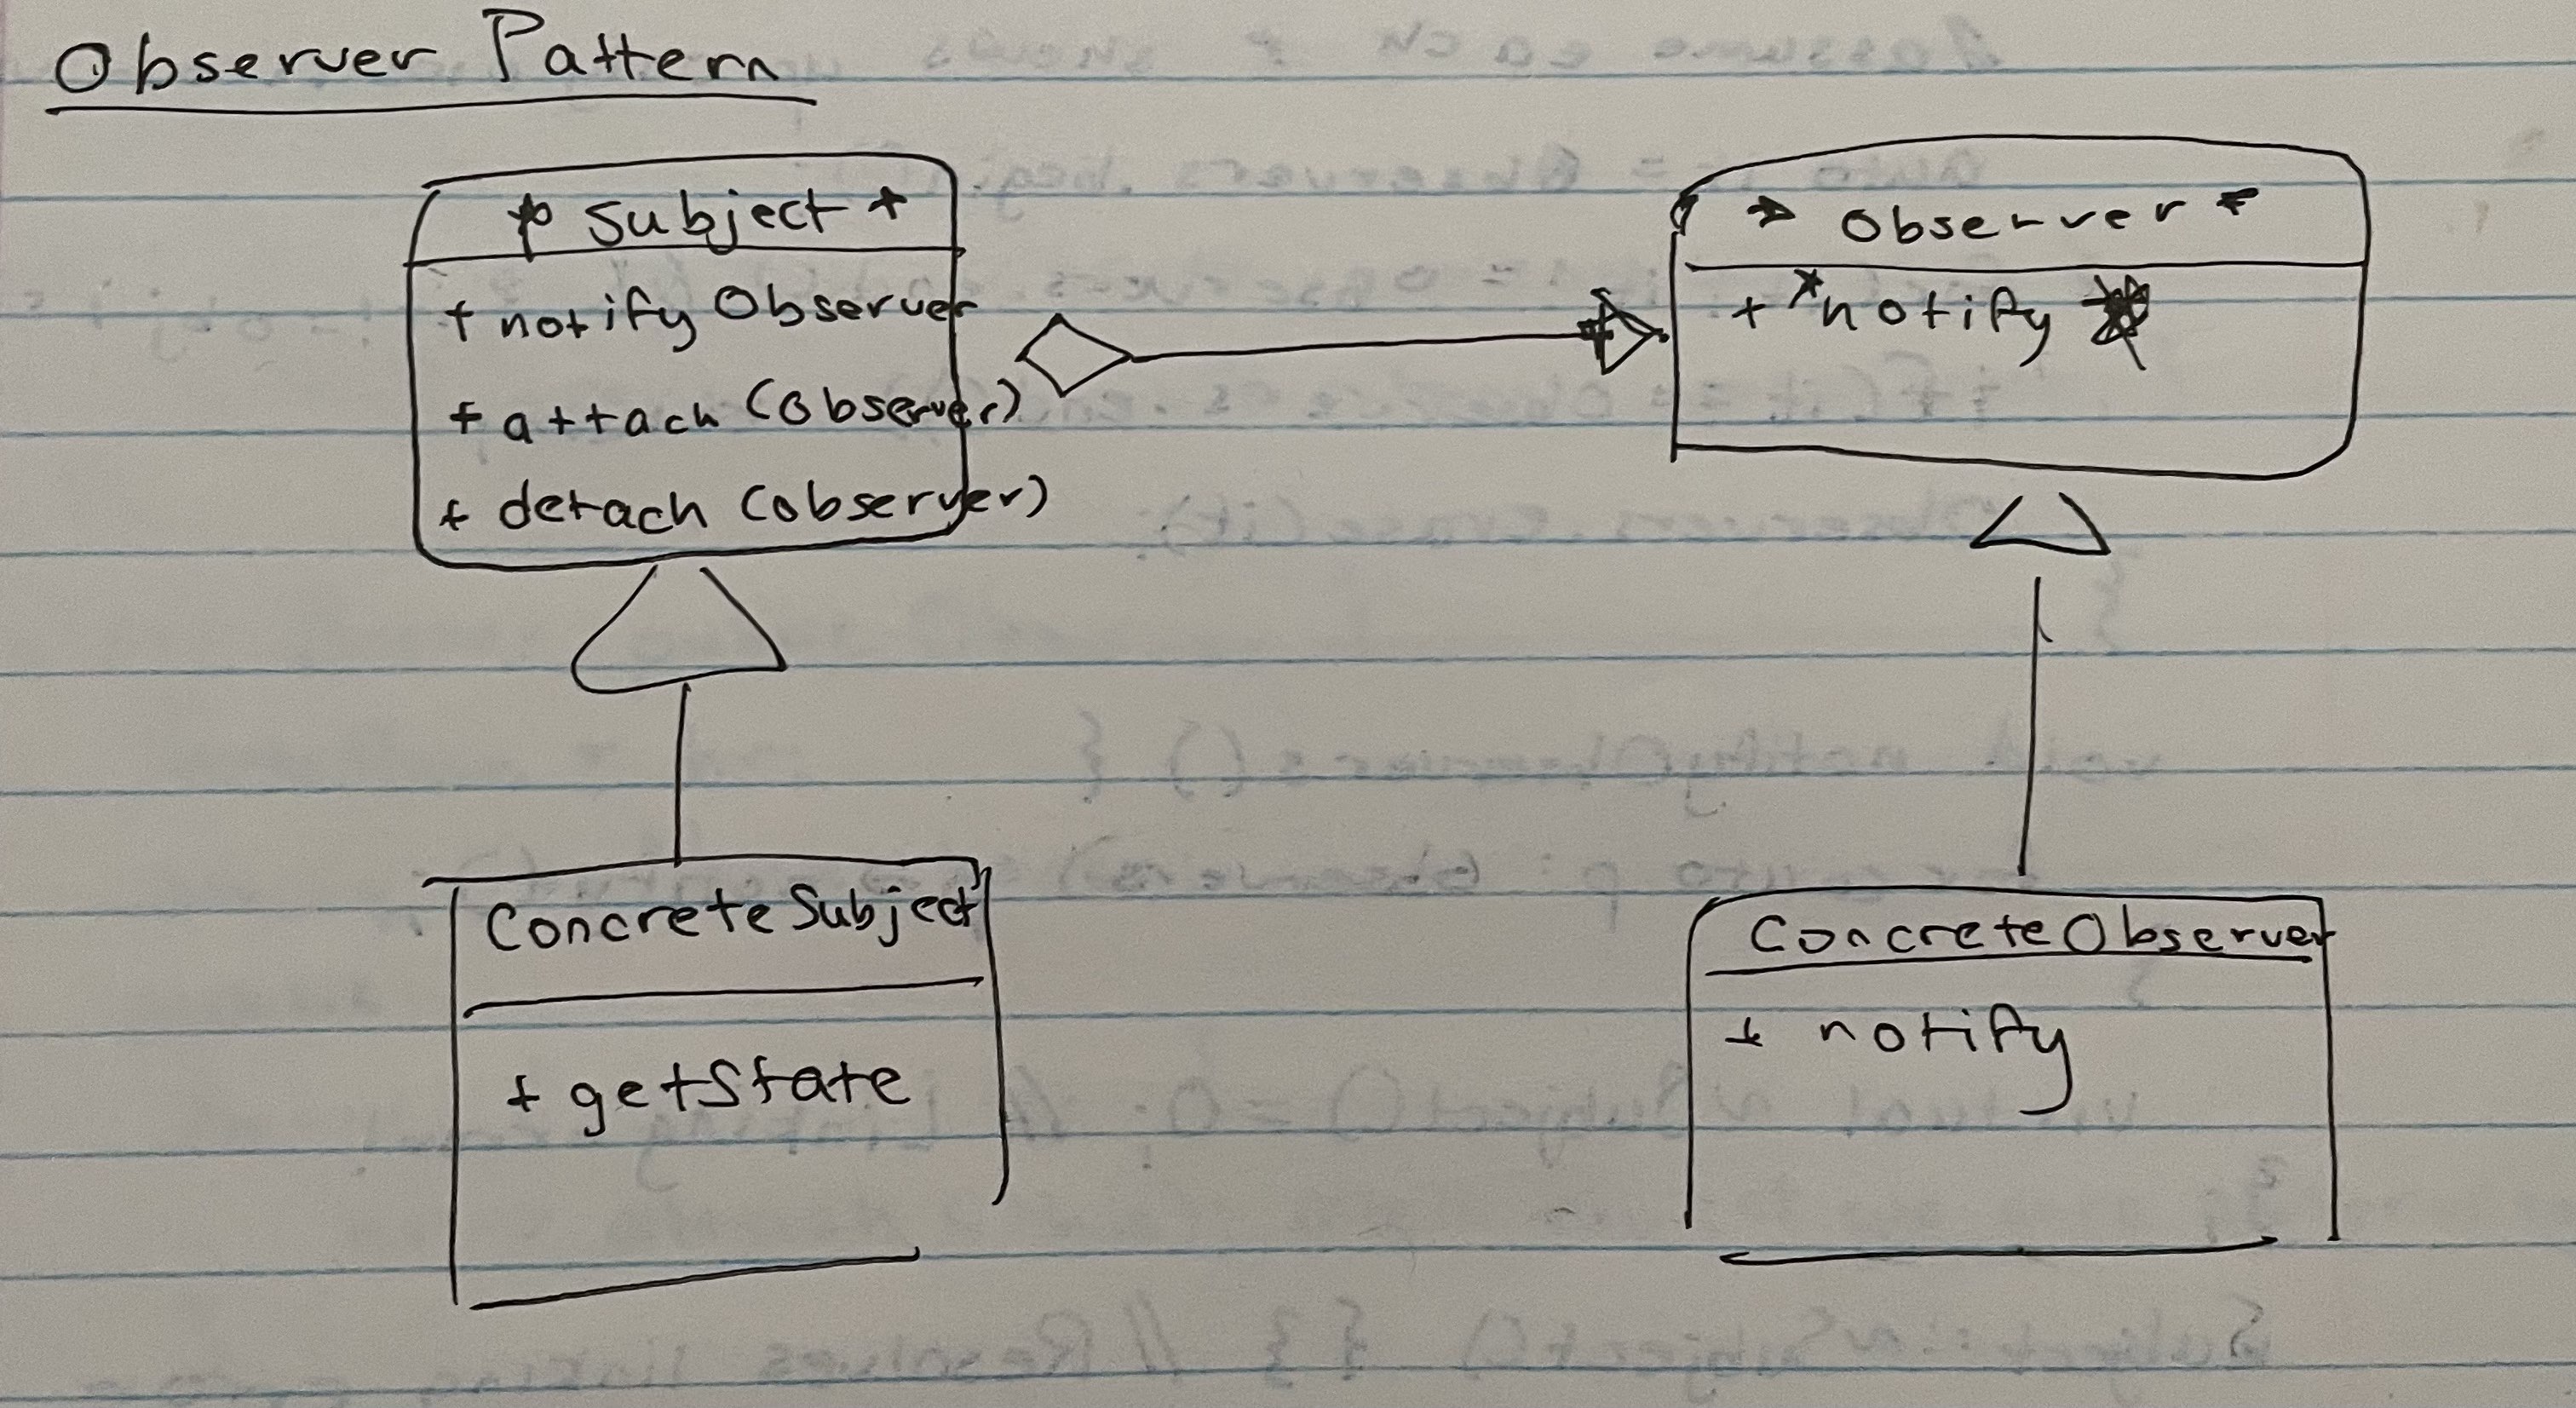 Observer Pattern
* Subject *
+ notifyObserver
+ attach (Observer)
+ detach (observer)
* Observer *
+ *notify
ConcreteSubject
+ getState
ConcreteObserver
+ notify